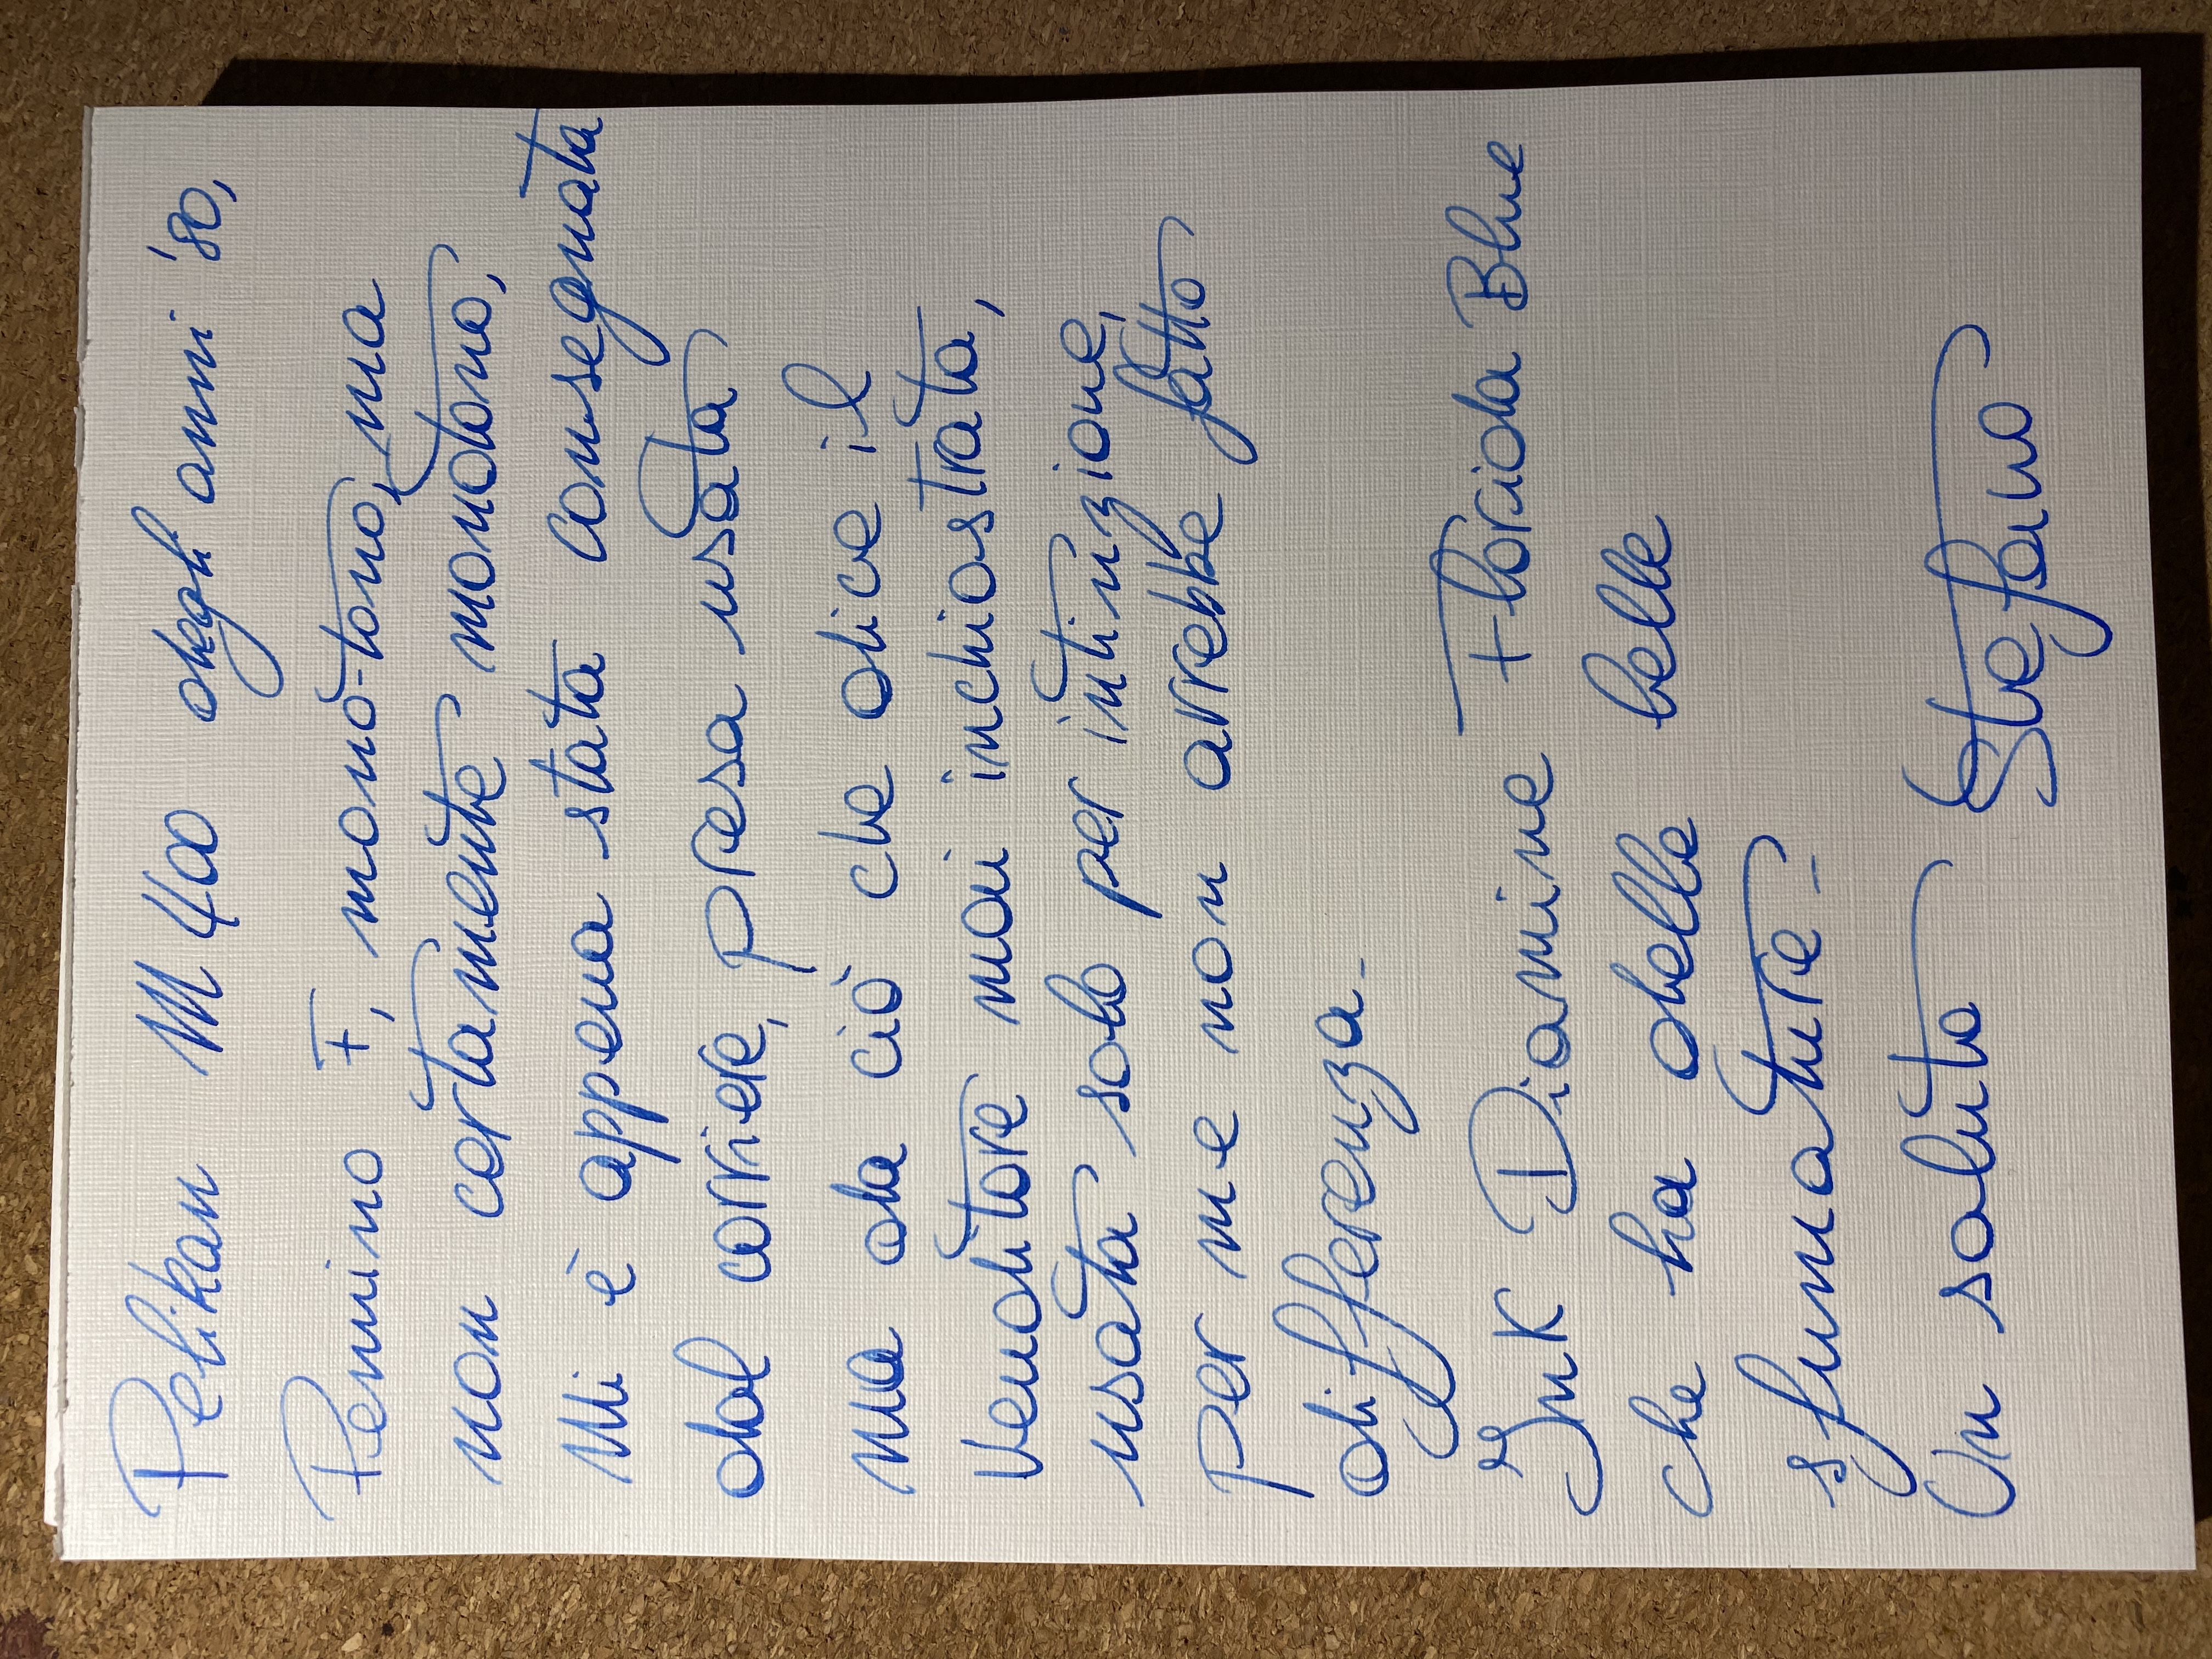 Pelikan M 400 degli anni '80,
Pennino F, mono-tono, ma
non certamente monotono,
Mi è appena stata consegnata
dal corriere, presa usata
ma da ciò che dice il
venditore mai inchiostrata,
usata solo per intinzione,
per me non avrebbe fatto
differenza -
Ink Diamine Florida Blue
che ha delle belle
sfumature -
Un saluto Stefano